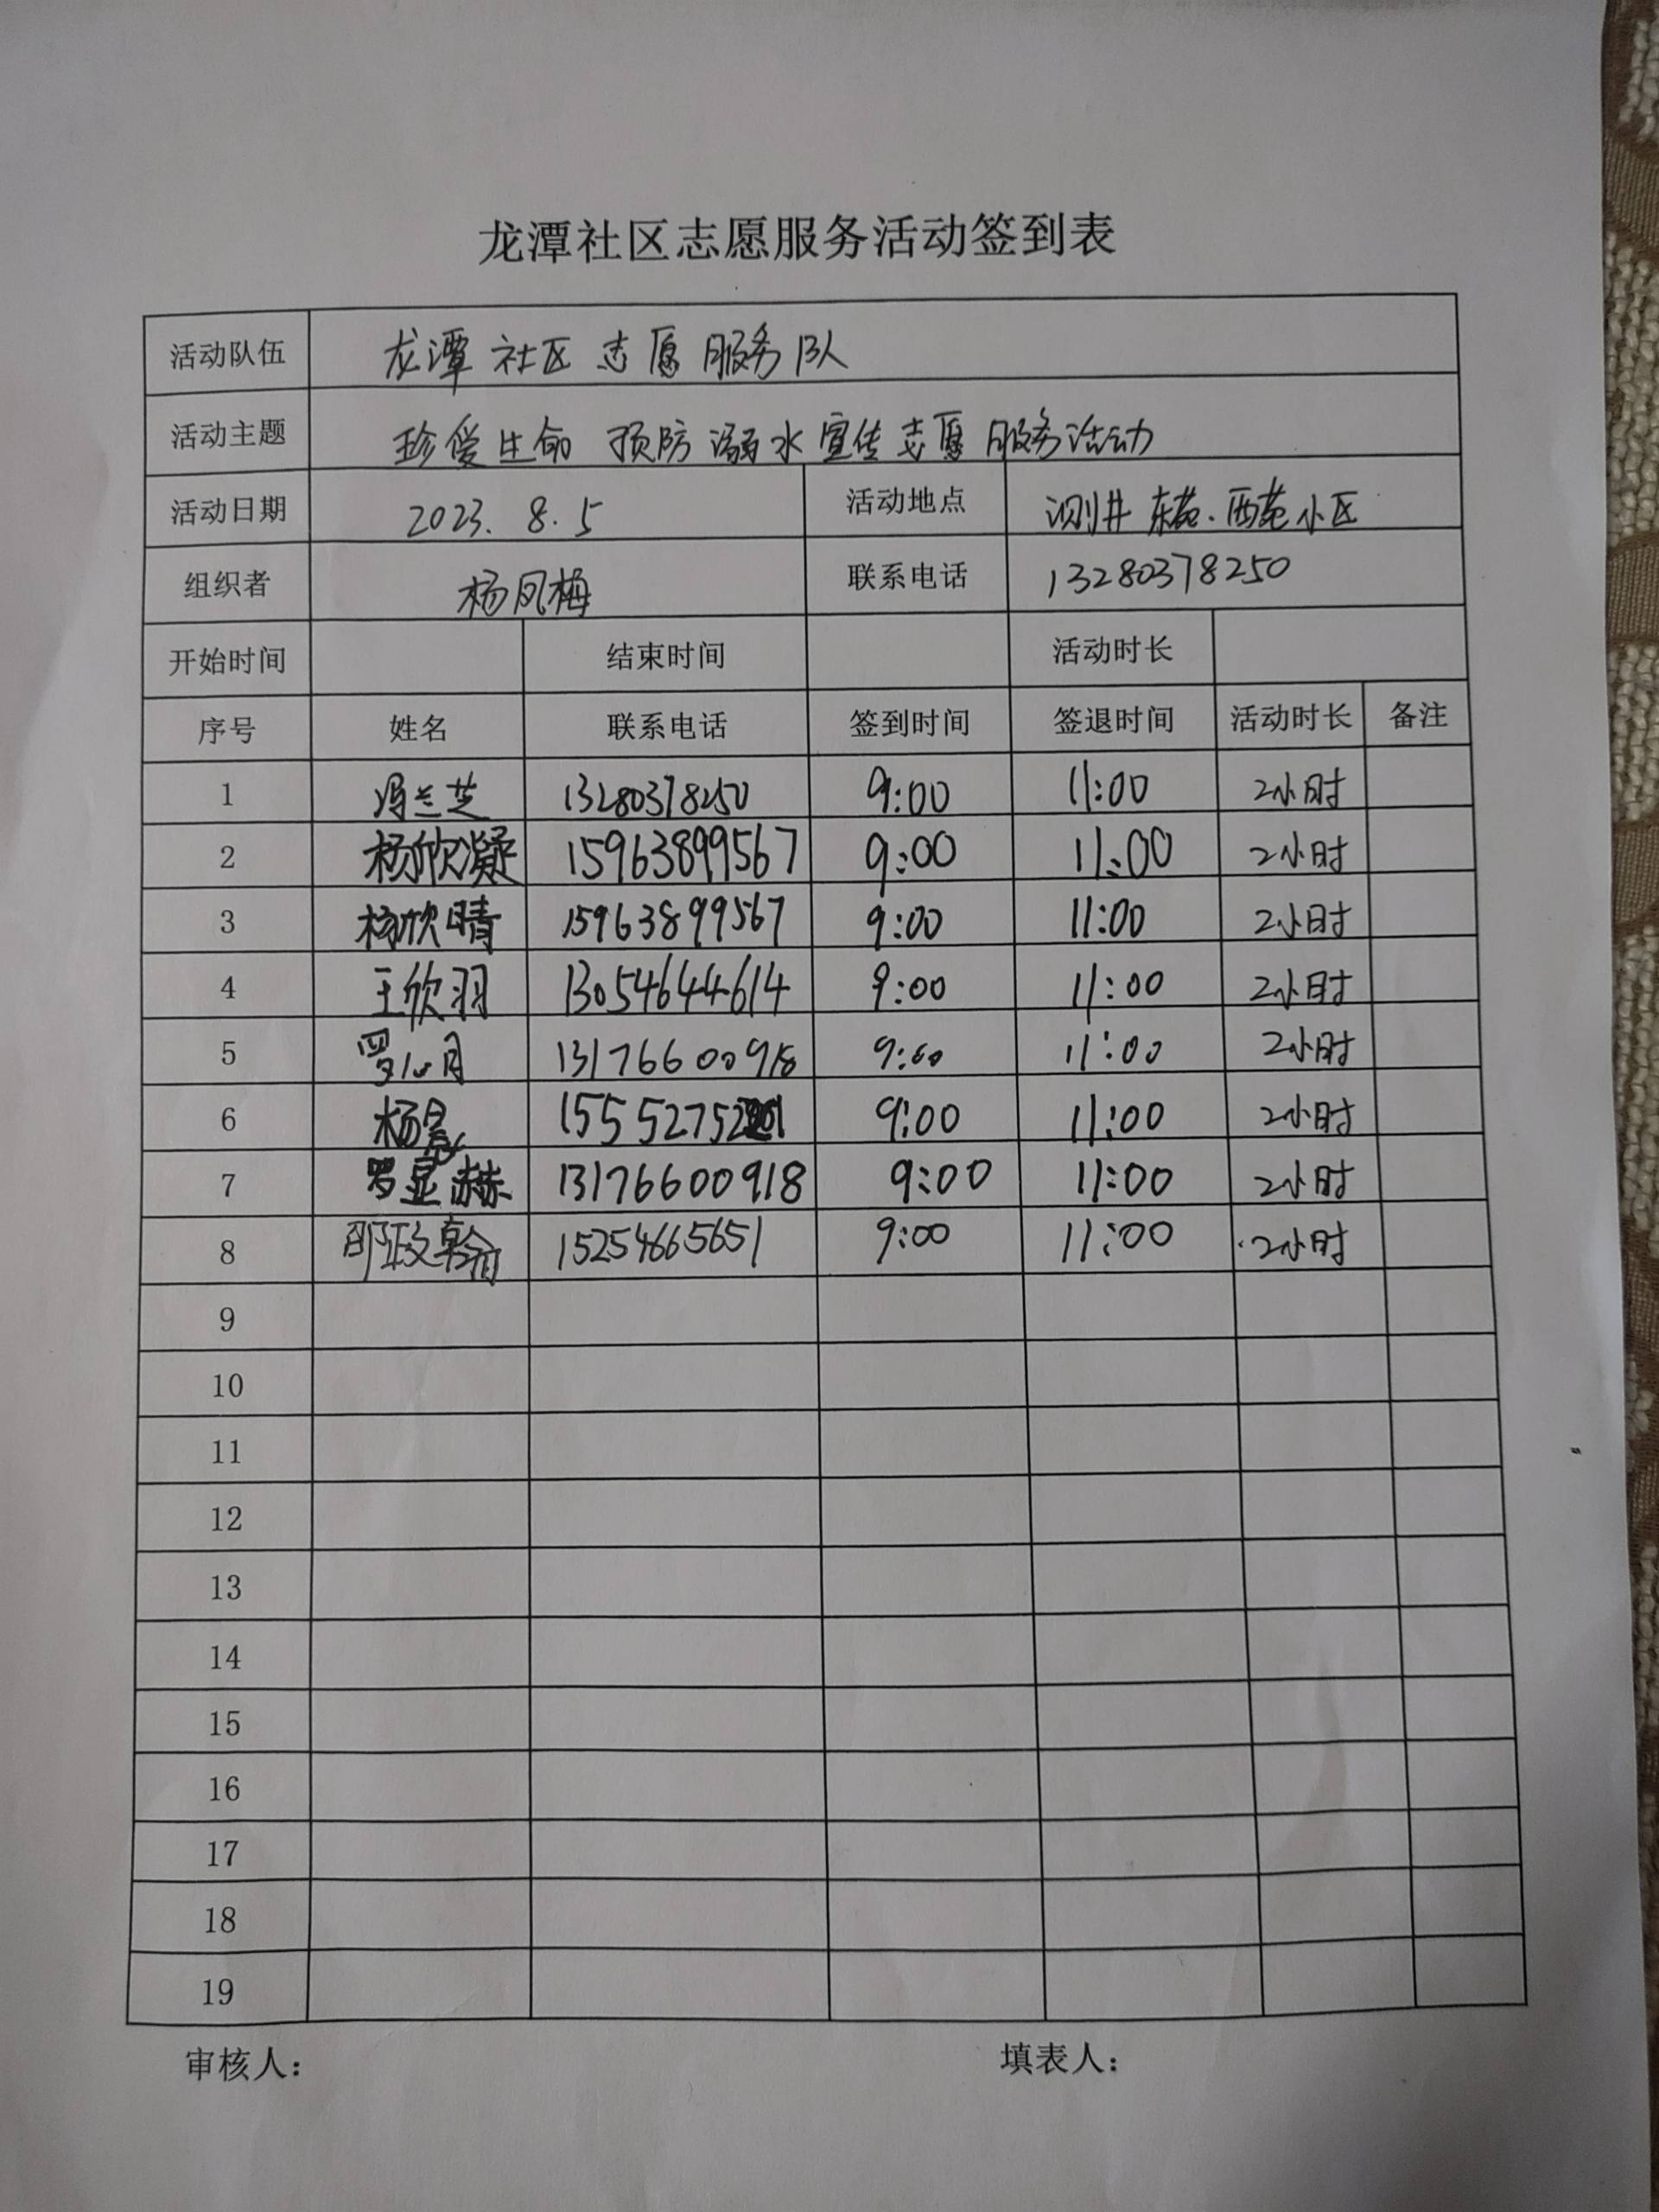 龙潭社区志愿服务活动签到表
活动队伍 龙潭社区志愿服务队
活动主题 珍爱生命 预防溺水宣传志愿服务活动
活动日期 2023.8.5 活动地点 测井东苑.西苑小区
组织者 杨凤梅 联系电话 13280378250
开始时间 结束时间 活动时长
序号 姓名 联系电话 签到时间 签退时间 活动时长 备注
1 冯兰芝 13280378250 9:00 11:00 2小时
2 杨欣凝 15963899567 9:00 11:00 2小时
3 杨欣晴 15963899567 9:00 11:00 2小时
4 王欣羽 13054644614 9:00 11:00 2小时
5 罗心月 13176600918 9:00 11:00 2小时
6 9:00 11:00 2小时
7 罗显赫 13176600918 9:00 11:00 2小时
8 15254665651 9:00 11:00 2小时
9
10
11
12
13
14
15
16
17
18
19
审核人： 填表人：